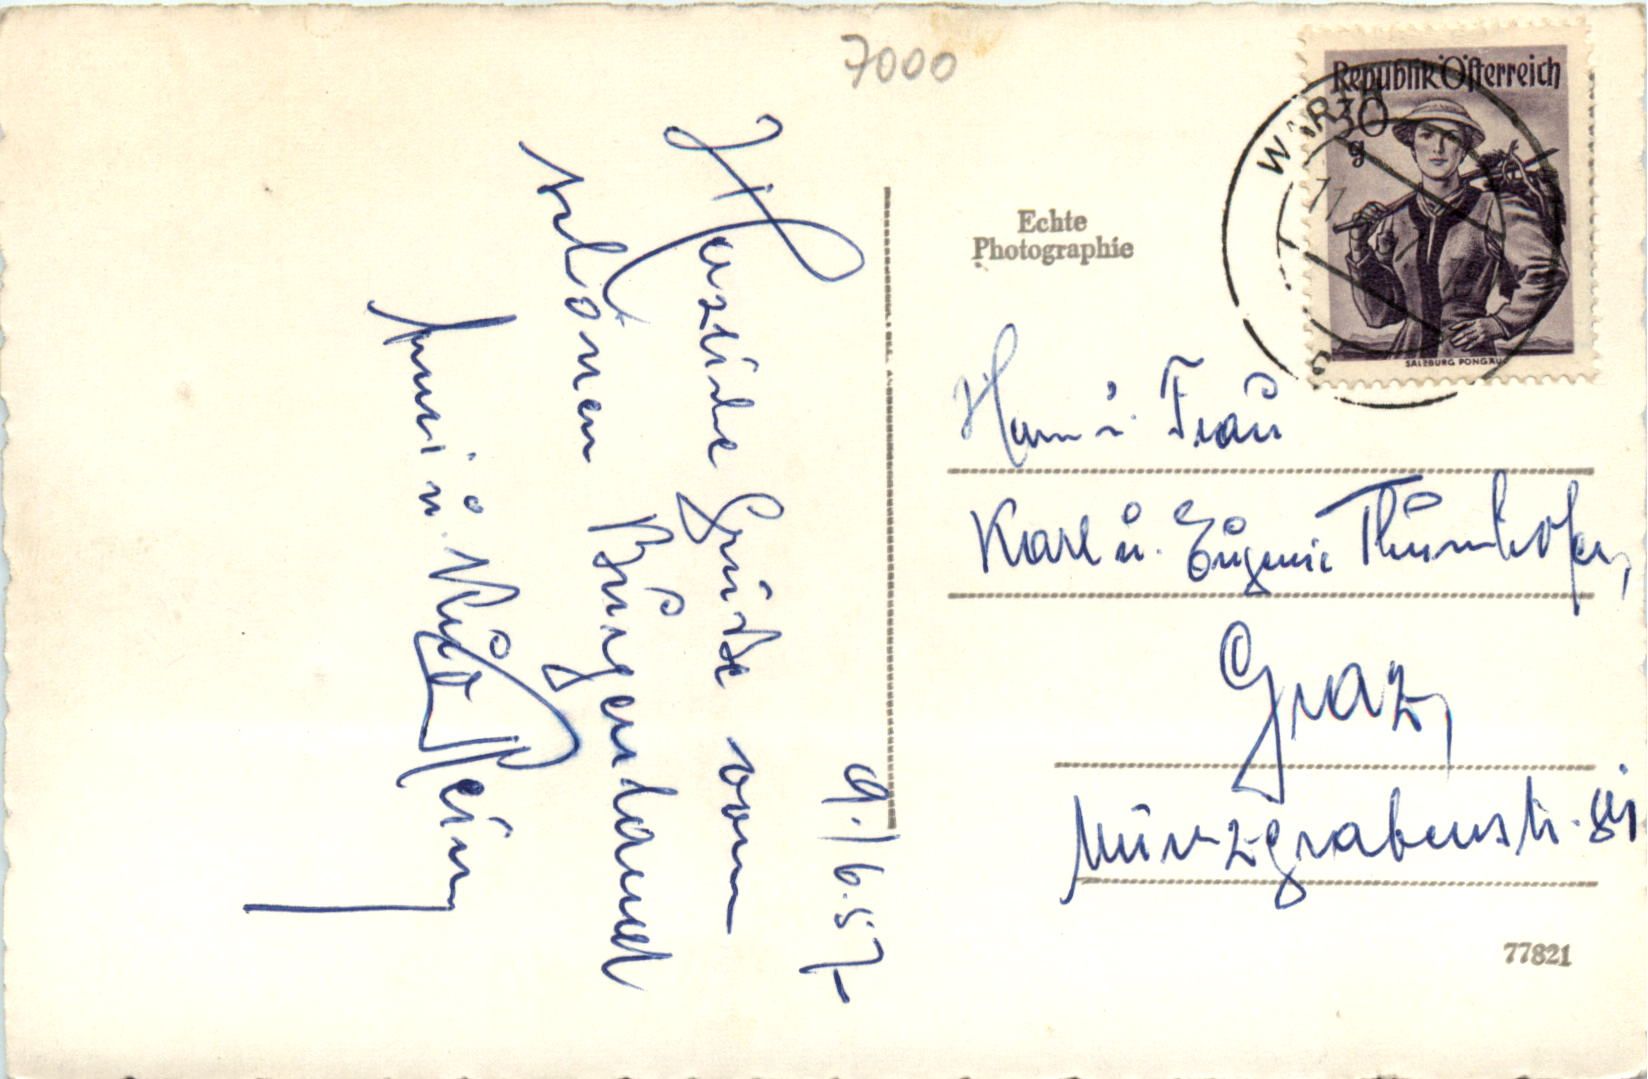 7000
9./6.57
Herzliche Grüße vom
schönen Burgenland
Anni u.
Echte
Photographie
Republik Österreich
30
g
SALZBURG PONGAU
WART
11
Herrn u. Frau
Karl u. Eugenie Thurnhofer,
Graz,
Münzgrabenstr.
77821